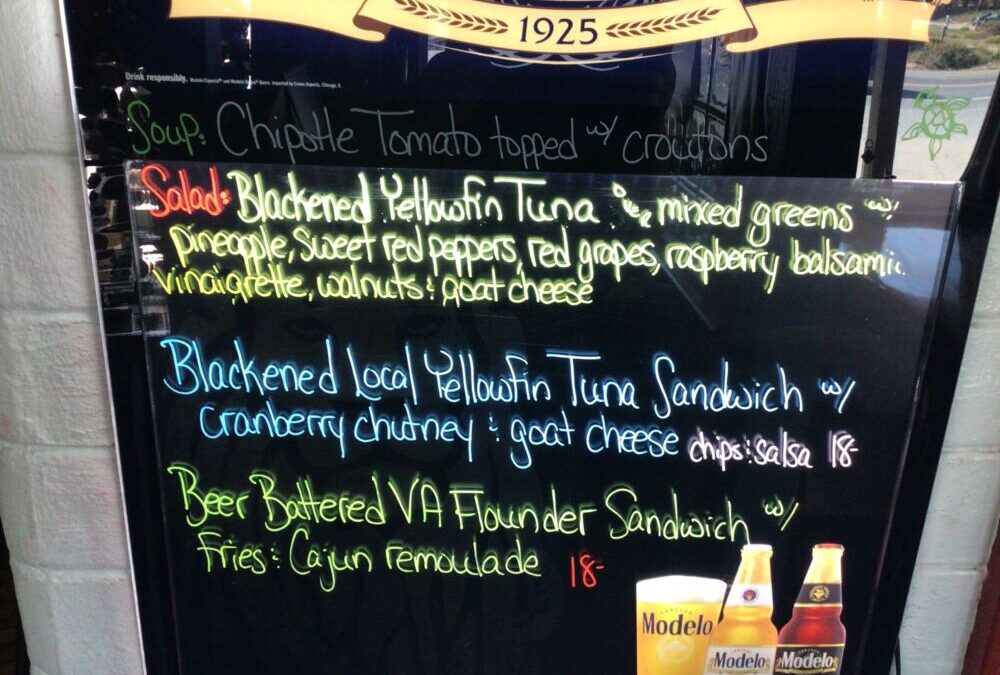 1925
Drink responsibly.
Soup: Chipotle Tomato topped w/ croutons
Salad: Blackened Yellowfin Tuna mixed greens w/
pineapple, sweet red peppers, red grapes, raspberry balsamic
vinaigrette, walnuts & goat cheese
Blackened Local Yellowfin Tuna Sandwich w/
cranberry chutney & goat cheese chips & salsa 18-
Beer Battered VA Flounder Sandwich w/
Fries & Cajun remoulade 18-
Modelo
Modelo Modelo